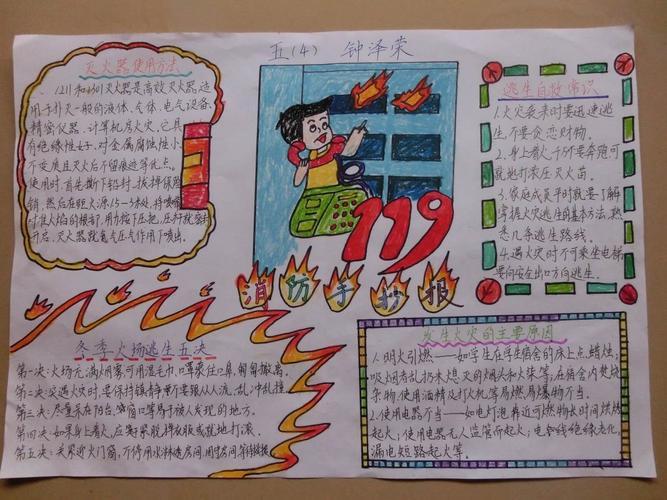 五(4) 钟泽荣
灭火器使用方法
1211和1301灭火器是高效灭火器,适
用于扑灭一般的液体、气体、电气设备、
精密仪器、计算机房火灾。它具
有绝缘性好,对金属腐蚀性小,
不变质且灭火后不留痕迹等优点。
使用时首先撕下铅封,拔掉保险
销,然后在距火源1.5—3米处,将喷嘴
对准火焰的根部,用力按下压把,压
开启。灭火器就氮气压气作用下喷出。
119
逃生自救常识
1.火灾袭来时要迅速逃
生,不要贪恋财物。
2.身上着火,千万不要奔跑可
就地打滚压灭火苗。
3.家庭成员平时就要了解
掌握火灾逃生的基本方法,熟
悉几条逃生路线。
4.遇火灾时不可乘坐电梯
要向安全出口方向逃生。
消防手抄报
冬季火场逃生五决
第一决:火场充满烟雾可用湿毛巾、口罩蒙住口鼻,匍匐撤离。
第二决:突遇火灾时,要保持镇静,不要跟从人流、乱冲乱撞。
第三决:尽量呆在阳台、窗口等易于被人发现的地方。
第四决:如果身上着火,应赶紧脱掉衣服或就地打滚。
第五决:关紧迎火门窗,不停用水淋透房间,固守房间等待救援。
发生火灾的主要原因
1.明火引燃——如学生在学生宿舍的床上点蜡烛,
吸烟者乱扔未熄灭的烟头和火柴等,在宿舍内焚烧
杂物,使用酒精及打火机等易燃易爆物不当。
2.使用电器不当——如电灯泡靠近可燃物长时间烘烤
起火;使用电器无人监管而起火;电穿线绝缘老化,
漏电短路起火等。